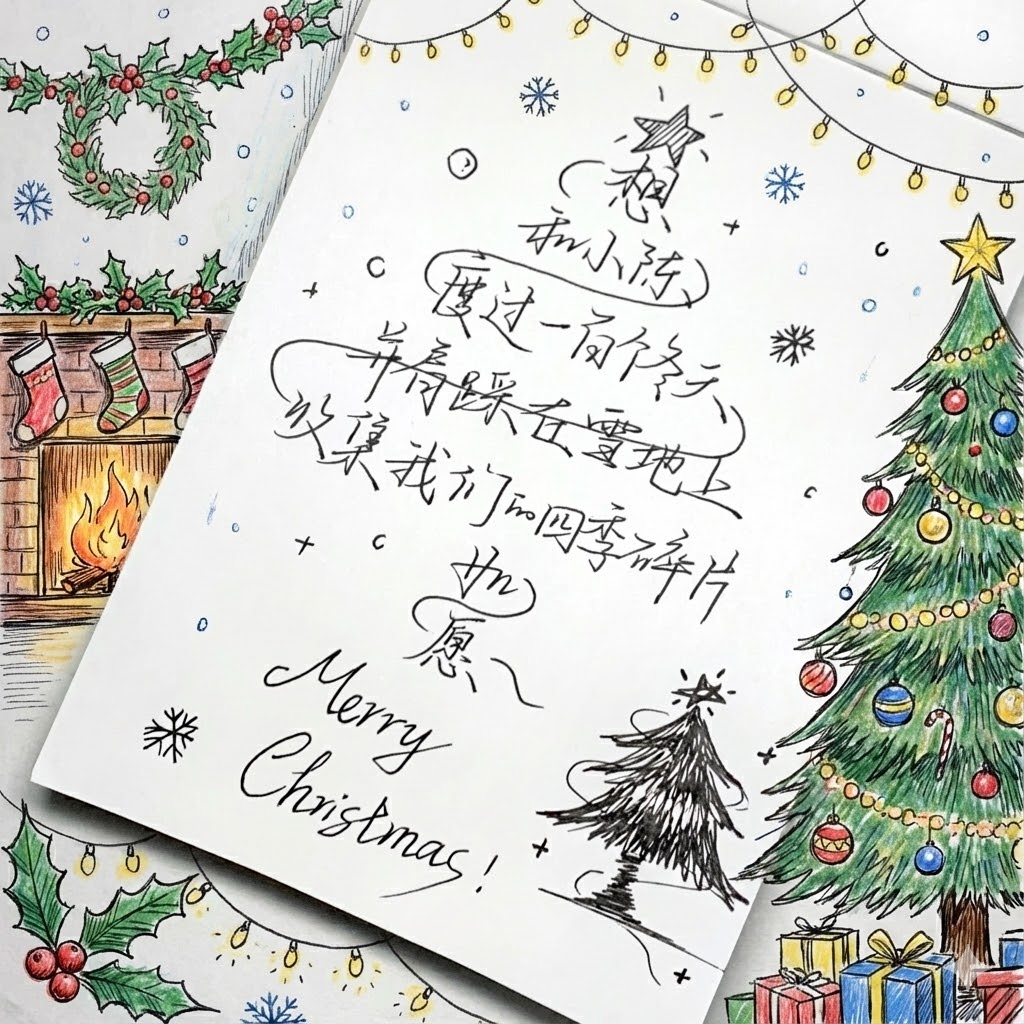 想
和小陈
度过一百个冬天
并肩踩在雪地上
收集我们的四季碎片
如
愿
Merry
Christmas!